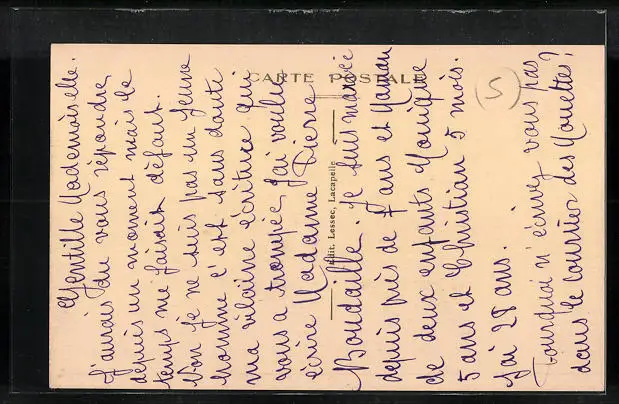 Gentille Mademoiselle.
J'aurais du vous répondre
depuis un moment mais le
temps me faisait défaut.
Non je ne suis pas un jeune
homme c'est sans doute
ma vilaine écriture qui
vous a trompée, j'ai voulu
écrire Madame Pierre
Boudaille. Je suis mariée
depuis près de 7 ans et Maman
de deux enfants Monique
5 ans et Christian 5 mois.
J'ai 28 ans.
Pourquoi n'écrivez vous pas
dans le courrier des Mouettes?
CARTE POSTALE
Edit. Lessec, Lacapelle
(5)